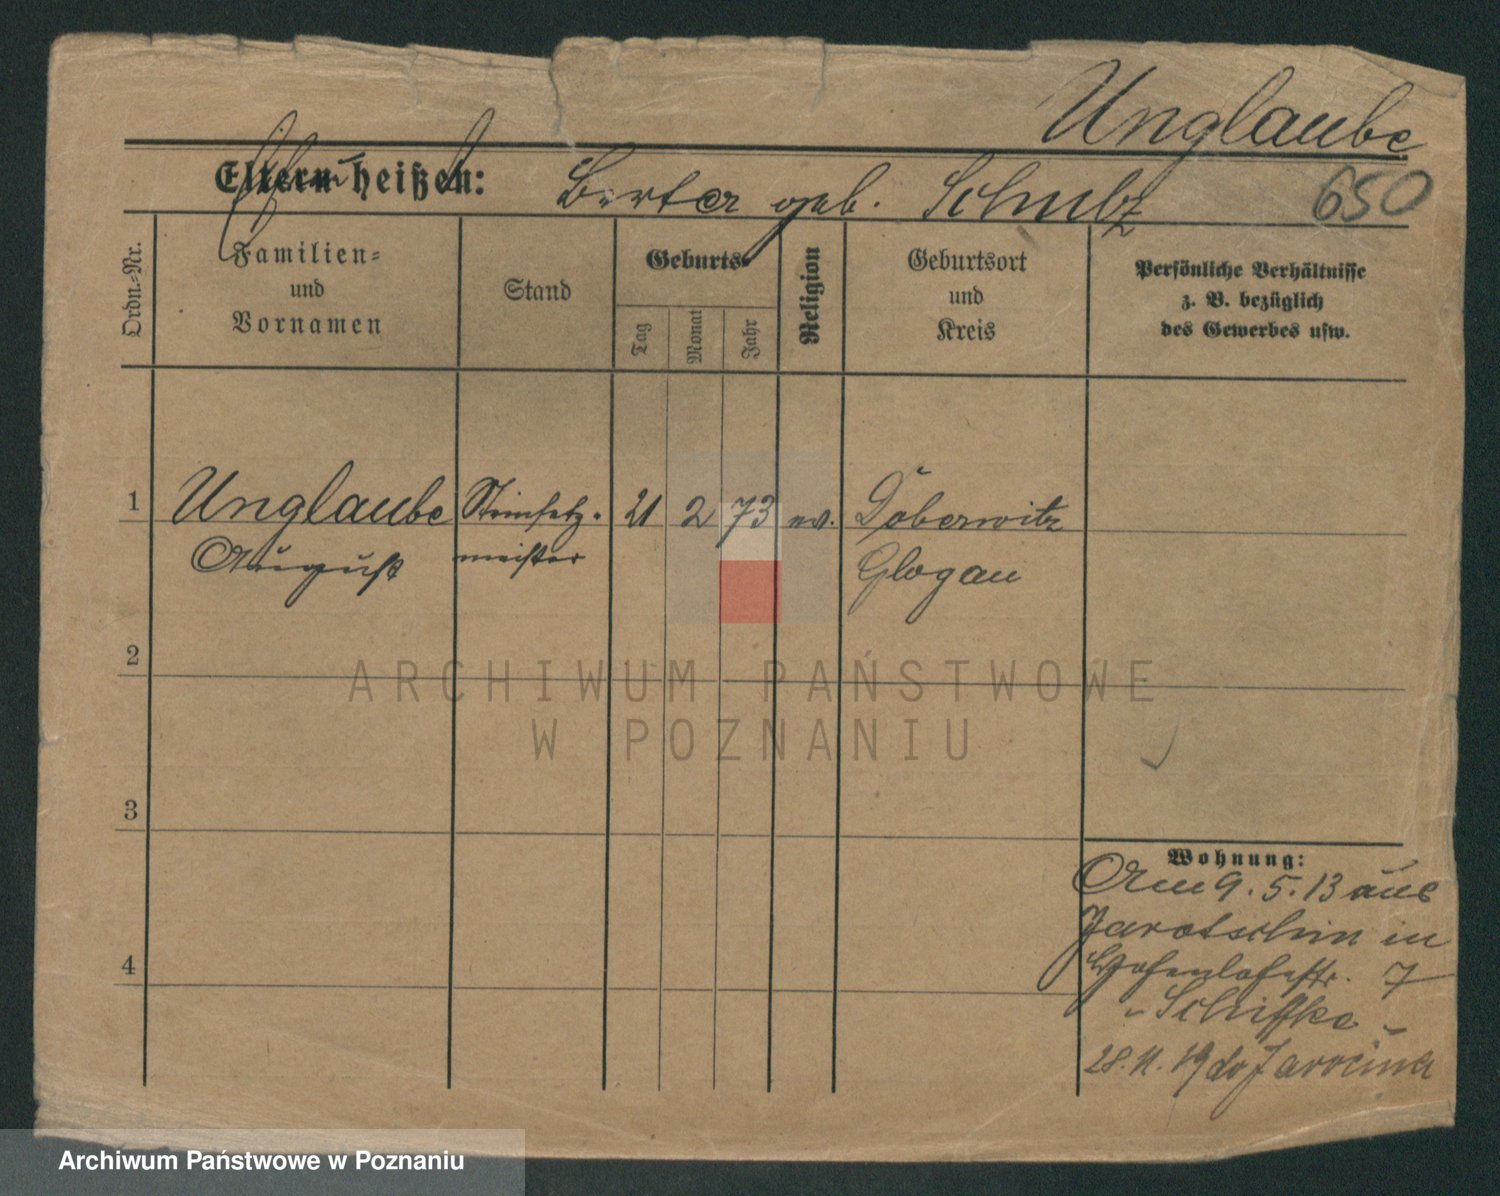 Unglaube
650
Eltern heißen: Berta geb. Schulz
Ordn.-Nr.
Familien-
und
Vornamen
Stand
Geburts-
Tag
Monat
Jahr
Religion
Geburtsort
und
Kreis
Persönliche Verhältnisse
z. B. bezüglich
des Gewerbes usw.
1 Unglaube Steinsetz- 21 2 73 ev. Doberwitz
August meister Glogau
2
3
4
Wohnung:
Am 9. 5. 13 aus
Jarotschin in
Hohenlohestr. 7
- Schiffke -
28. 11. 19 do Jarocina
ARCHIWUM PAŃSTWOWE
W POZNANIU
Archiwum Państwowe w Poznaniu